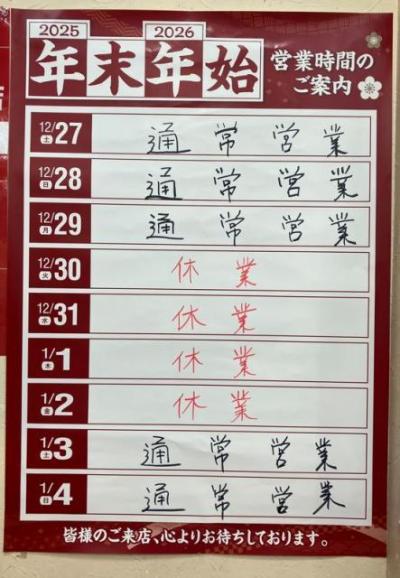 2025 2026
年末年始 営業時間のご案内
12/27 土 通常営業
12/28 日 通常営業
12/29 月 通常営業
12/30 火 休業
12/31 水 休業
1/1 木 休業
1/2 金 休業
1/3 土 通常営業
1/4 日 通常営業
皆様のご来店、心よりお待ちしております。